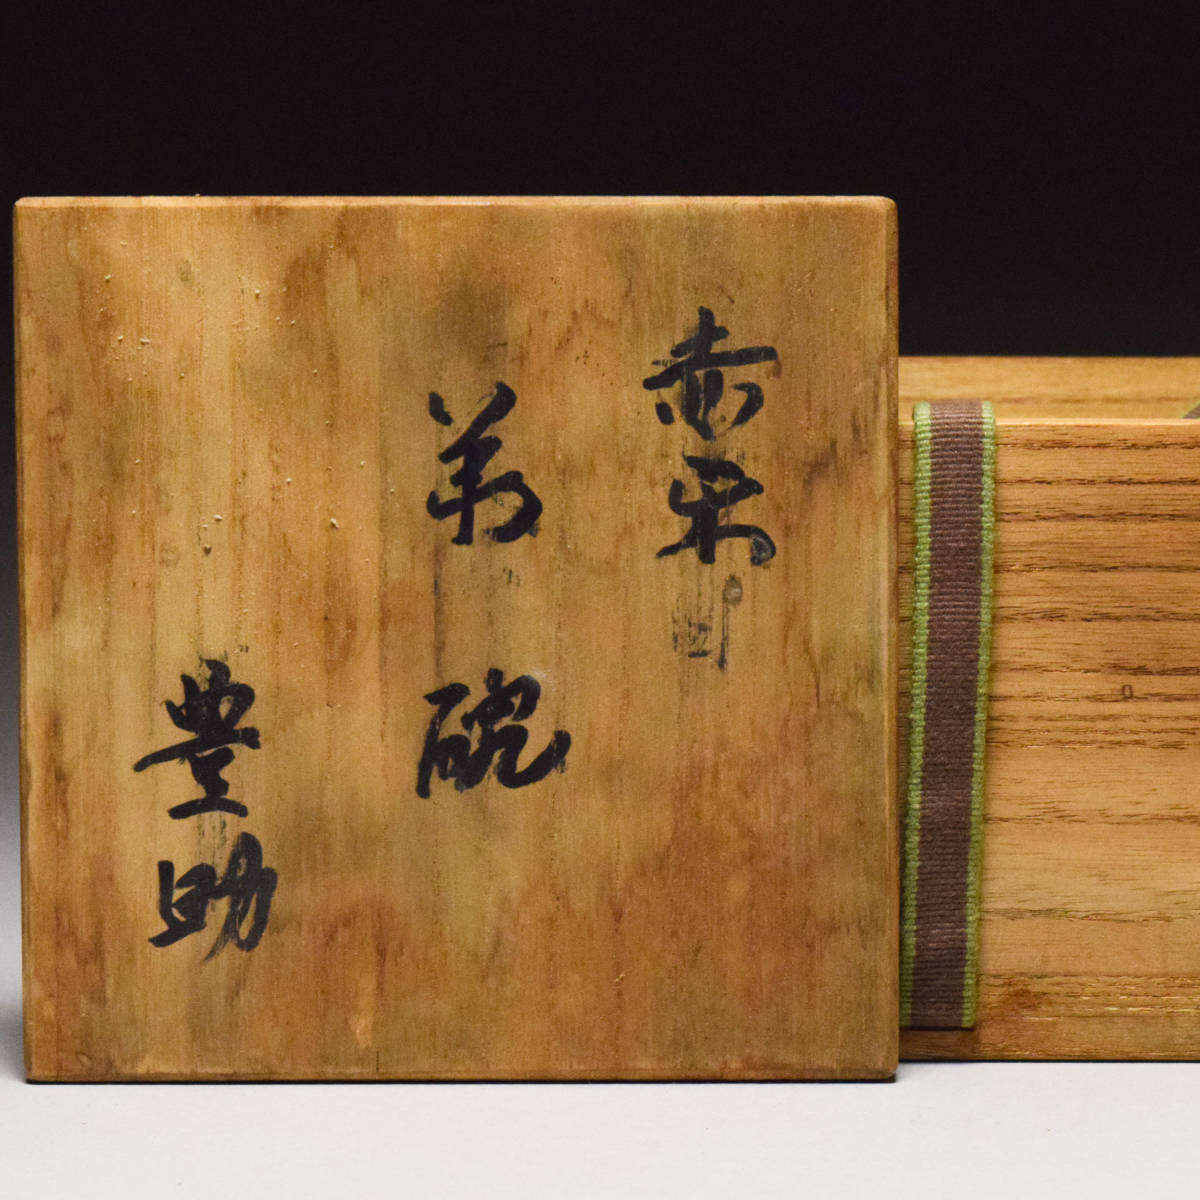 赤楽
茶碗
豊助